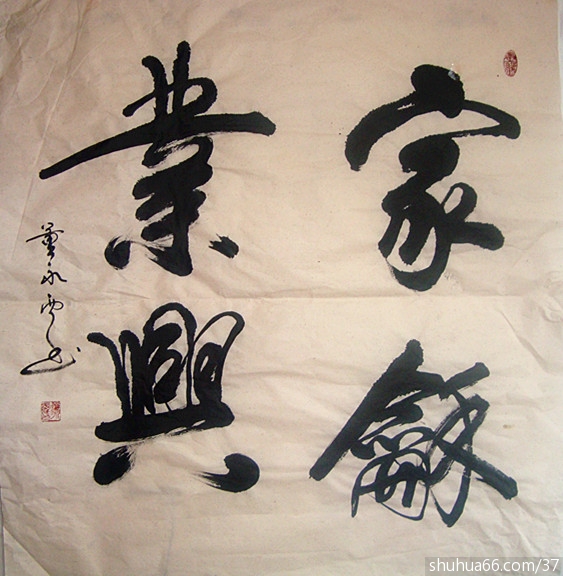 家龢
業興
董永雲书
shuhua66.com/37